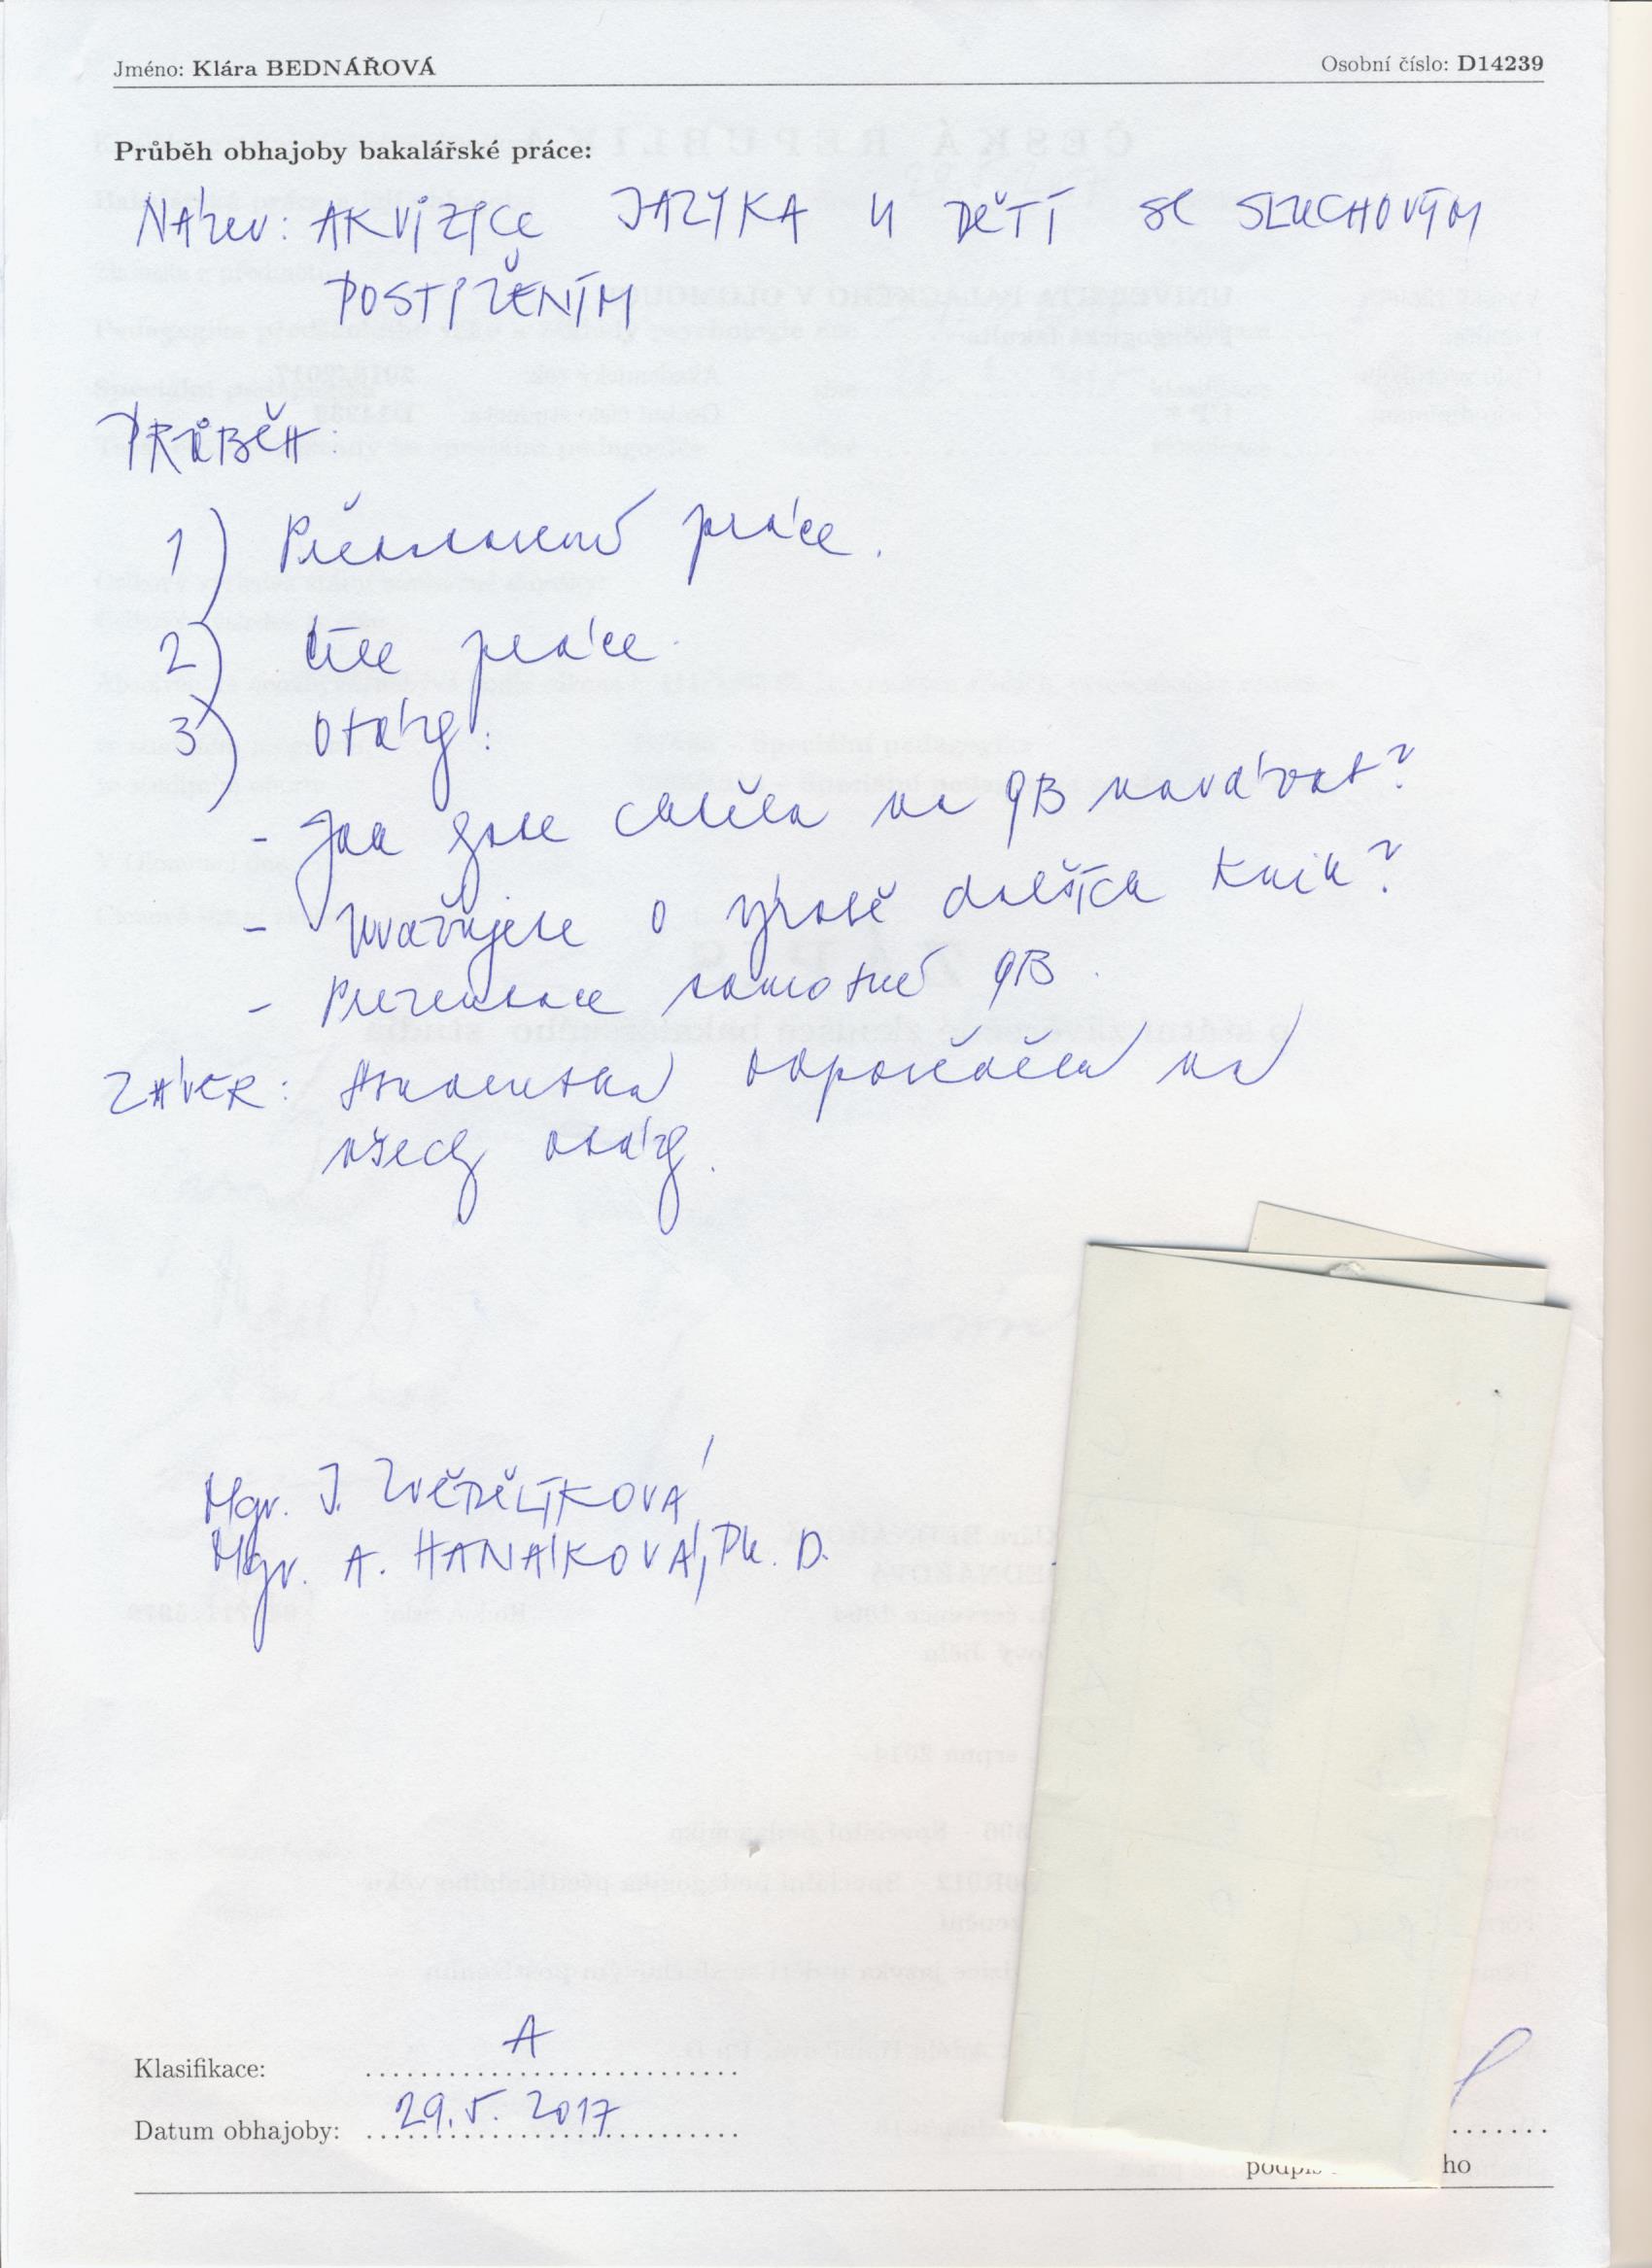 Jméno: Klára BEDNÁŘOVÁ
Osobní číslo: D14239
Průběh obhajoby bakalářské práce:
NÁZEV: AKVIZICE JAZYKA U DĚTÍ SE SLUCHOVÝM
POSTIŽENÍM
PRŮBĚH:
1) Představení práce.
2) Cíle práce.
3) Otázky:
- Jak jste chtěla na QB navázat?
- Uvažujete o výrobě dalších knih?
- Prezentace samotné QB.
ZÁVĚR: Studentka odpověděla na
všechy otázky.
Mgr. J. ZVĚDĚLÍKOVÁ
Mgr. A. HANÁKOVÁ, Ph. D.
Klasifikace: A
Datum obhajoby: 29. 5. 2017